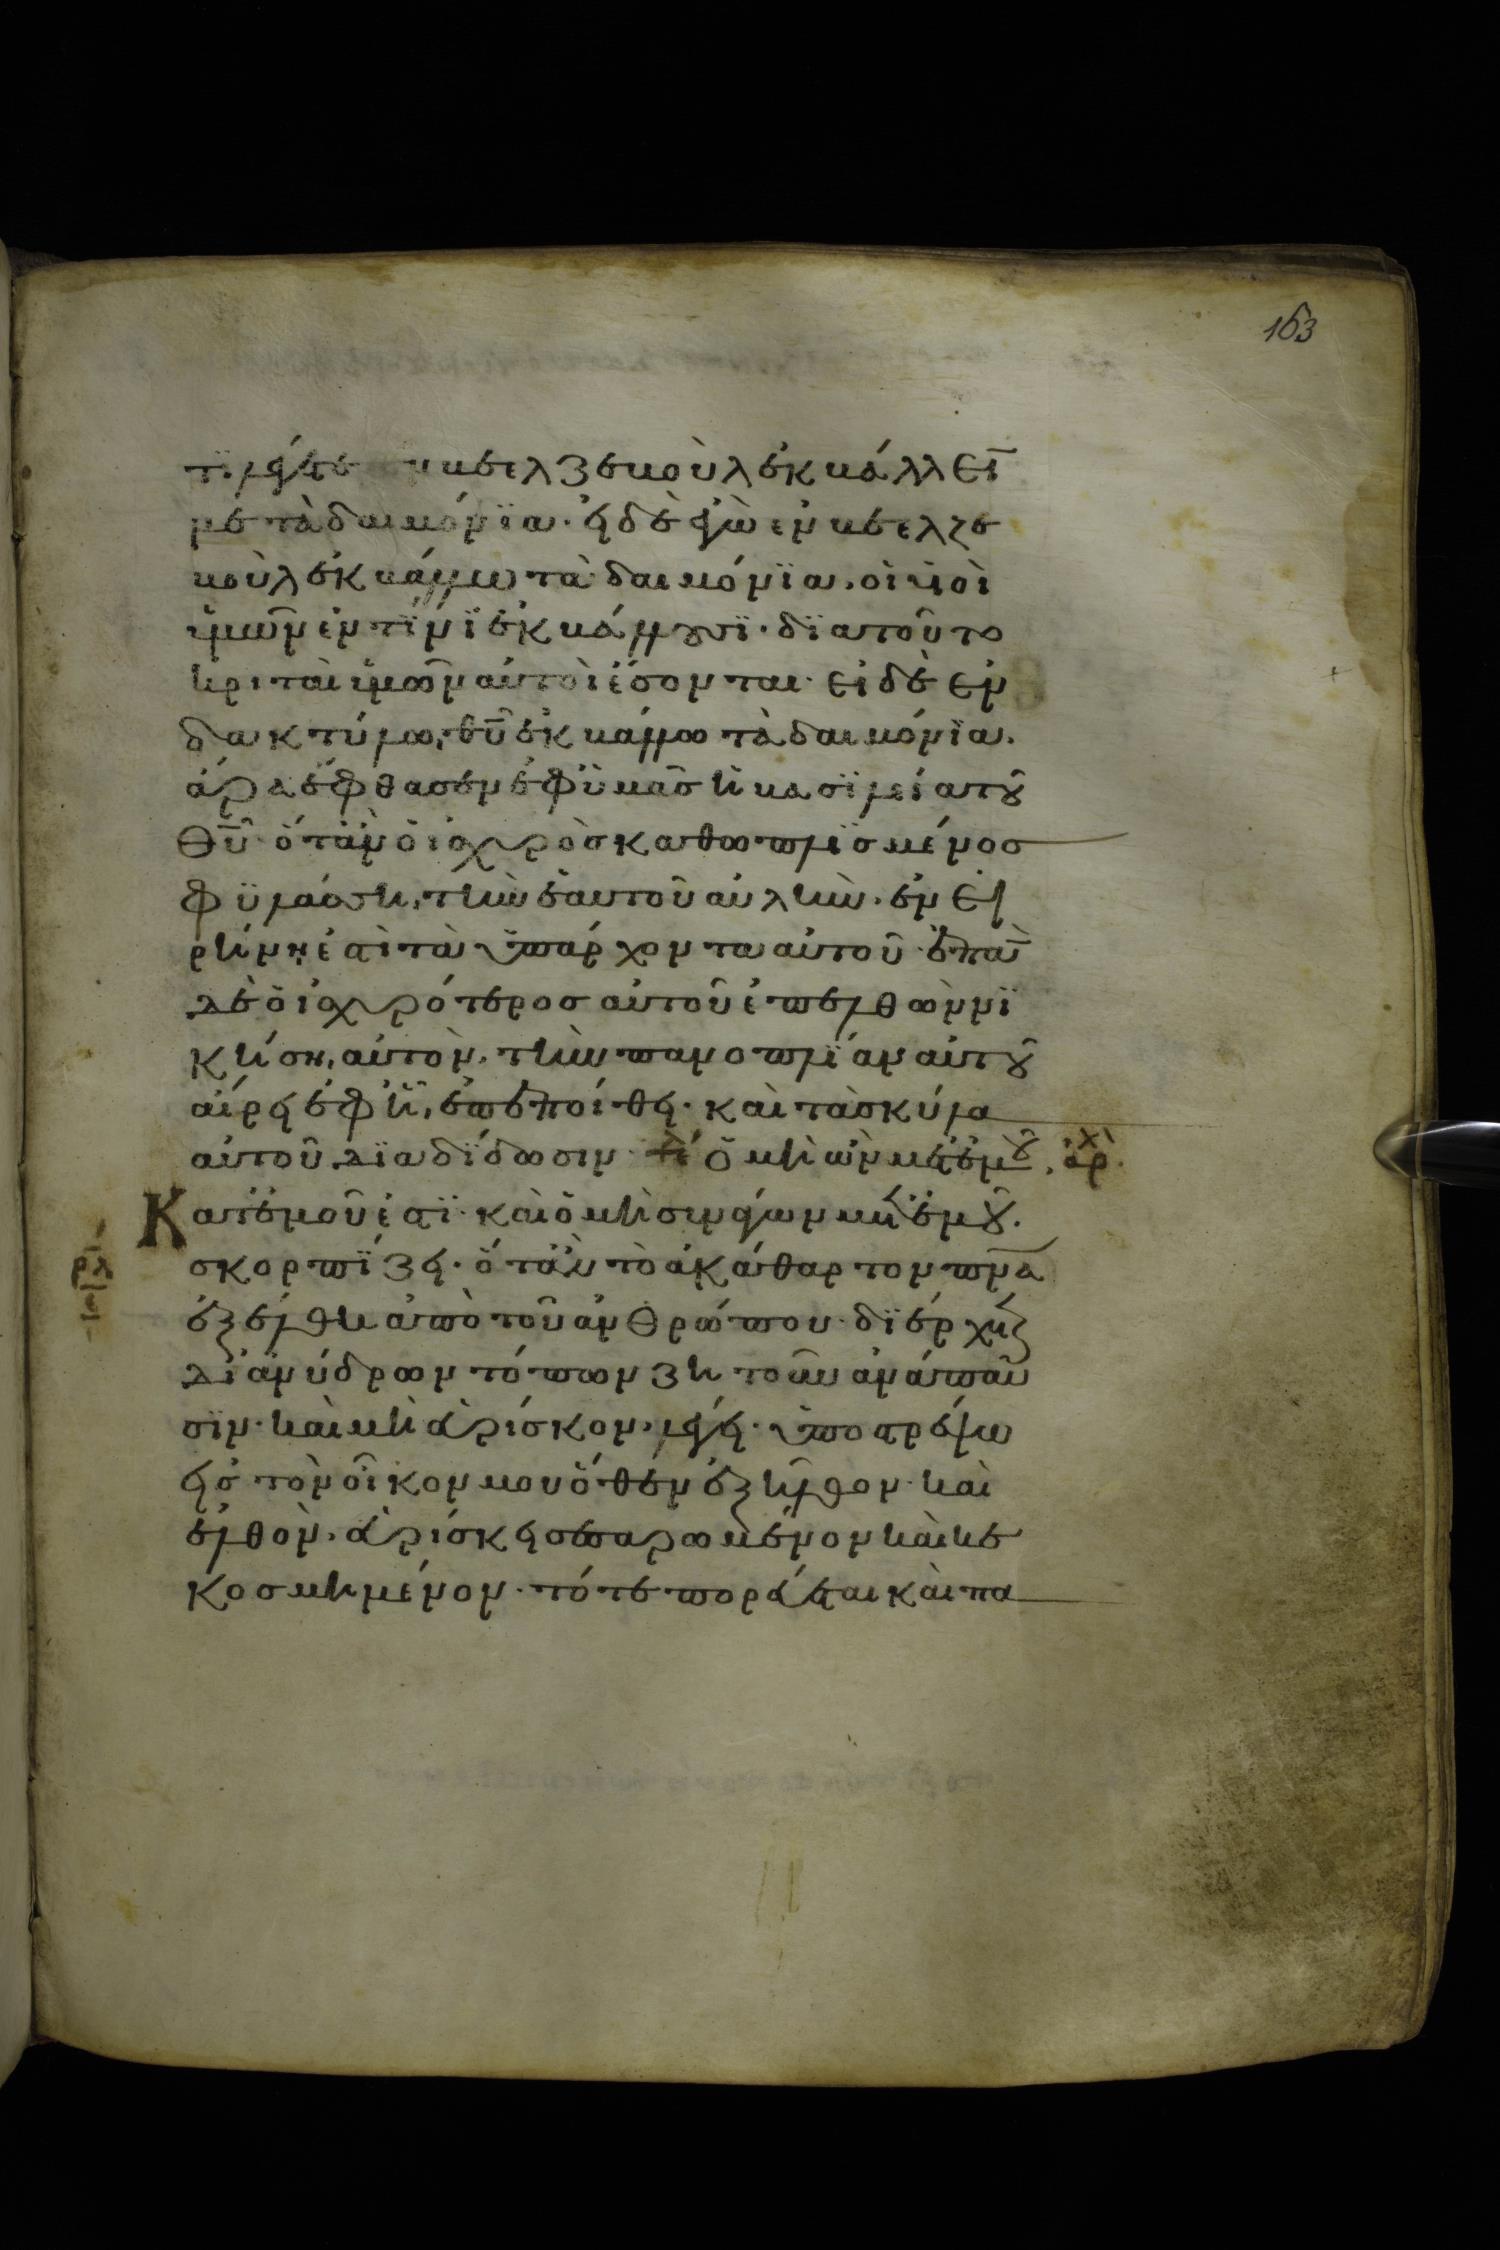 163
τϊ λέγετε βεελζεβοὺλ ἐκβάλλει̅
με τὰ δαιμόνϊα. εἰ δὲ ἐγὼ ἐν βεελζε
βοὺλ ἐκβάλλω τὰ δαιμόνϊα. οἱ υἱοὶ
ὑμῶν ἐν τίνϊ ἐκβάλλουσϊ. δϊατοῦτο
κριταὶ ὑμῶν αὐτοὶ ἔσονται. εἰ δὲ ἐν
δακτύλω θ̅υ̅ ἐκβάλλω τὰ δαιμόνϊα.
ἄρα ἔφθασεν ἐφ ὑμᾶς ἡ βασϊλεία τοῦ
θ̅υ̅. ὅταν ὁ ἰσχυρὸς καθωπλϊσμένος
φϋλάσση, τὴν ἑαυτοῦ αὐλὴν. ἐν εἰ
ρήνη ἐστὶ τὰ ὑπάρχοντα αὐτοῦ. ἐπὰν
δὲ ὁ ἰσχυρότερος αὐτοῦ ἐπελθὼν νϊ
κήση, αὐτὸν. τὴν πανοπλΐαν αὐτοῦ
αἴρει ἐφ ἧ, ἐπεποίθει. καὶ τὰ σκύλα
αὐτοῦ δϊαδΐδωσιν. ὁ μὴ ὢν μετ ἐμοῦ. ἀρχ
Κατ ἐμοῦ ἐστϊ. καὶ ὁ μὴ συνάγων μετ ἐμοῦ.
ρλ
σκορπΐζει. ὅταν τὸ ἀκάθαρτον π̅ν̅α̅
ἐξέλθη ἀπὸ τοῦ ἀνθρώπου. δϊέρχεται
δι ἀνύδρων τόπων ζητοῦν ἀνάπαυ
σϊν. καὶ μὴ εὑρίσκον. λέγει. ὑποστρέψω
εἰς τὸν οἶκον μου ὅθεν ἐξῆλθον. καὶ
ἐλθὸν. εὑρίσκει σεσαρωμένον καὶ κε
κοσμημένον. τότε πορεύεται καὶ πα